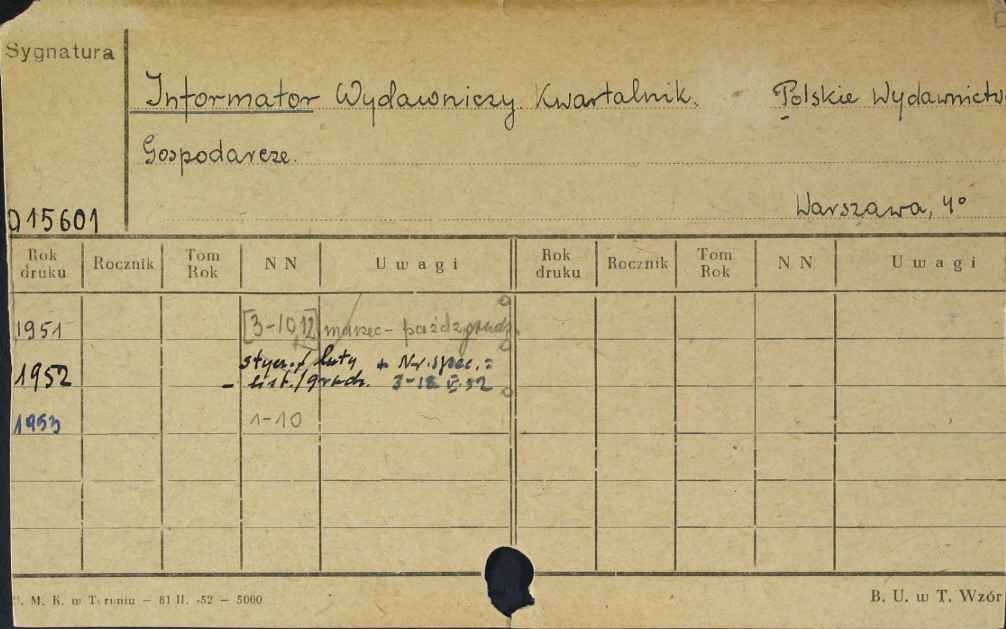 Sygnatura
Informator Wydawniczy. Kwartalnik. Polskie Wydawnictw
Gospodarcze.
015601 Warszawa, 4°
Rok druku Rocznik Tom Rok N N Uwagi Rok druku Rocznik Tom Rok N N Uwagi
1951 [3-10,12] marzec - paźdz, grudz.
1952 stycz./luty + Nr. spec. =
- list./grudz. 3-18 V.52
1953 1-10
U. M. K. w Toruniu — 81 II. -52 — 5000 B. U. w T. Wzór